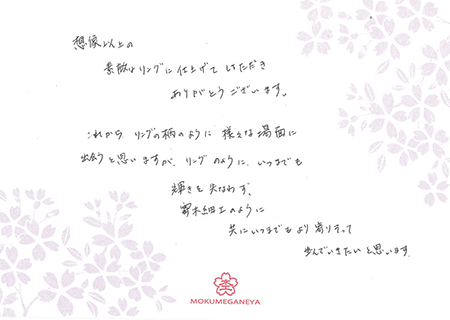 想像以上の
素敵なリングに仕上げていただき
ありがとうございます。
これから、リングの柄のように様々な場面に
出会うと思いますが、リングのように、いつまでも
輝きを失なわず、
寄木細工のように
共にいつまでもより寄りそって
歩んでいきたいと思います。
MOKUMEGANEYA